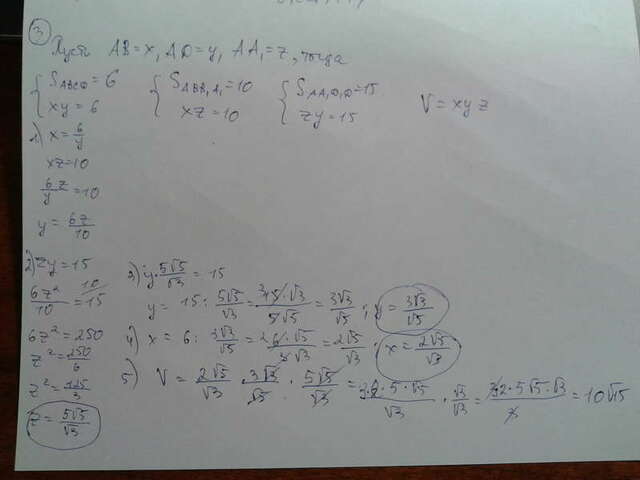 3
Пусть AB=x, AD=y, AA₁=z, тогда
{S_ABCD=6 {S_ABB₁A₁=10 {S_AA₁D₁D=15
xy=6 xz=10 zy=15 V=xyz
1) x=6/y
xz=10
6z/y=10
y=6z/10
2) zy=15
6z²/10=15
6z²=250
z²=250/6
z²=125/3
z=5√5/√3
3) y·5√5/√3=15
y=15:5√5/√3=15·√3/5√5=3√3/√5; y=3√3/√5
4) x=6:3√3/√5=6·√5/3√3=2√5/√3; x=2√5/√3
5) V=2√5/√3·3√3/√5·5√5/√3=3·2·5·√5/√3·√3/√3=3·2·5√5·√3/3=10√15